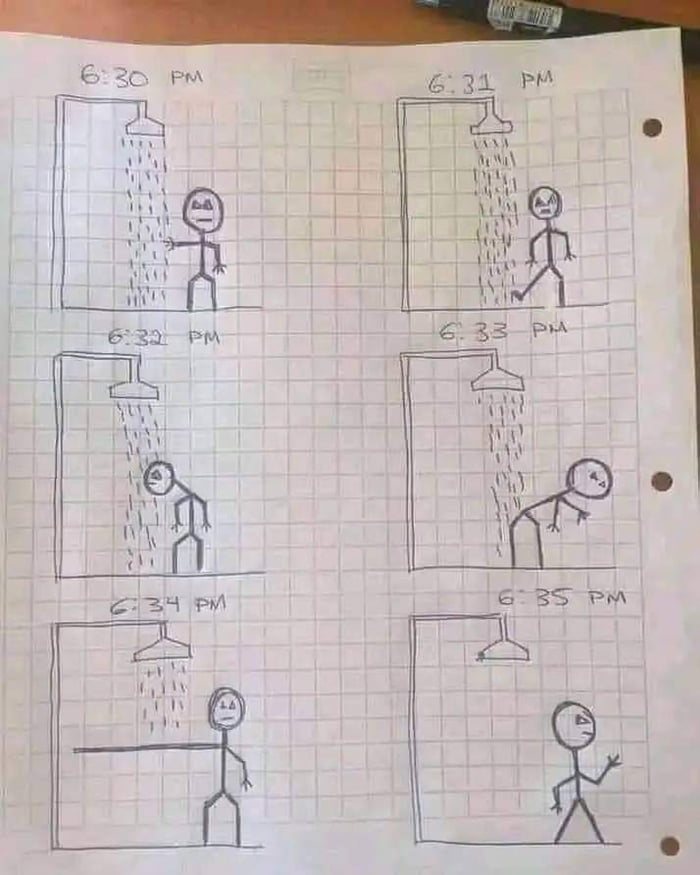 6:30 PM
6:31 PM
6:32 PM
6:33 PM
6:34 PM
6:35 PM